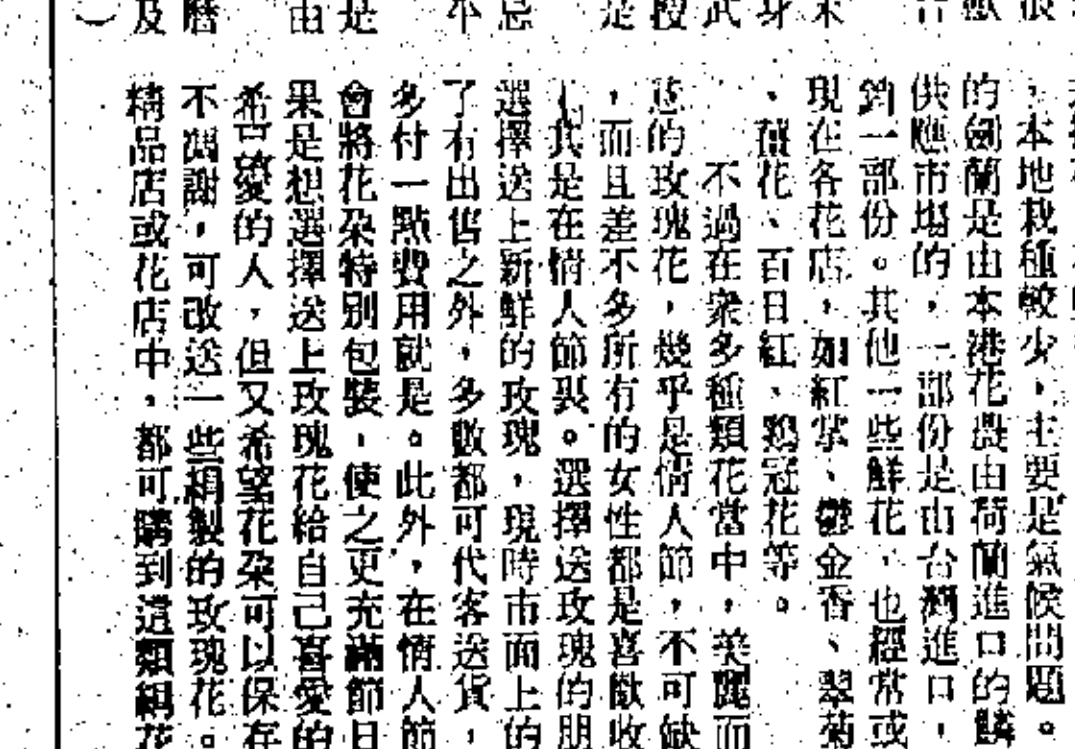 ，本地栽種較少，主要是氣候問題。
的劍蘭是由本港花農由荷蘭進口的
供應市場的，一部份是由台灣進口，
一部份。其他一些鮮花，也經常或
現在各花店，如紅掌、鬱金香、翠菊
、薑花、百日紅、鷄冠花等。
不過在衆多種類花當中，美麗而
的玫瑰花，幾乎是情人節，不可缺
，而且差不多所有的女性都是喜歡收
其是在情人節裏。選擇送玫瑰的朋
選擇送上新鮮的玫瑰，現時市面上的
了有出售之外，多數都可代客送貨，
多付一點費用就是。此外，在情人節
會將花朶特別包裝，使之更充滿節日
果是想選擇送上玫瑰花給自己喜愛的
希望愛的人，但又希望花朶可以保存
不凋謝，可改送一些絹製的玫瑰花。
精品店或花店中，都可購到這類絹花